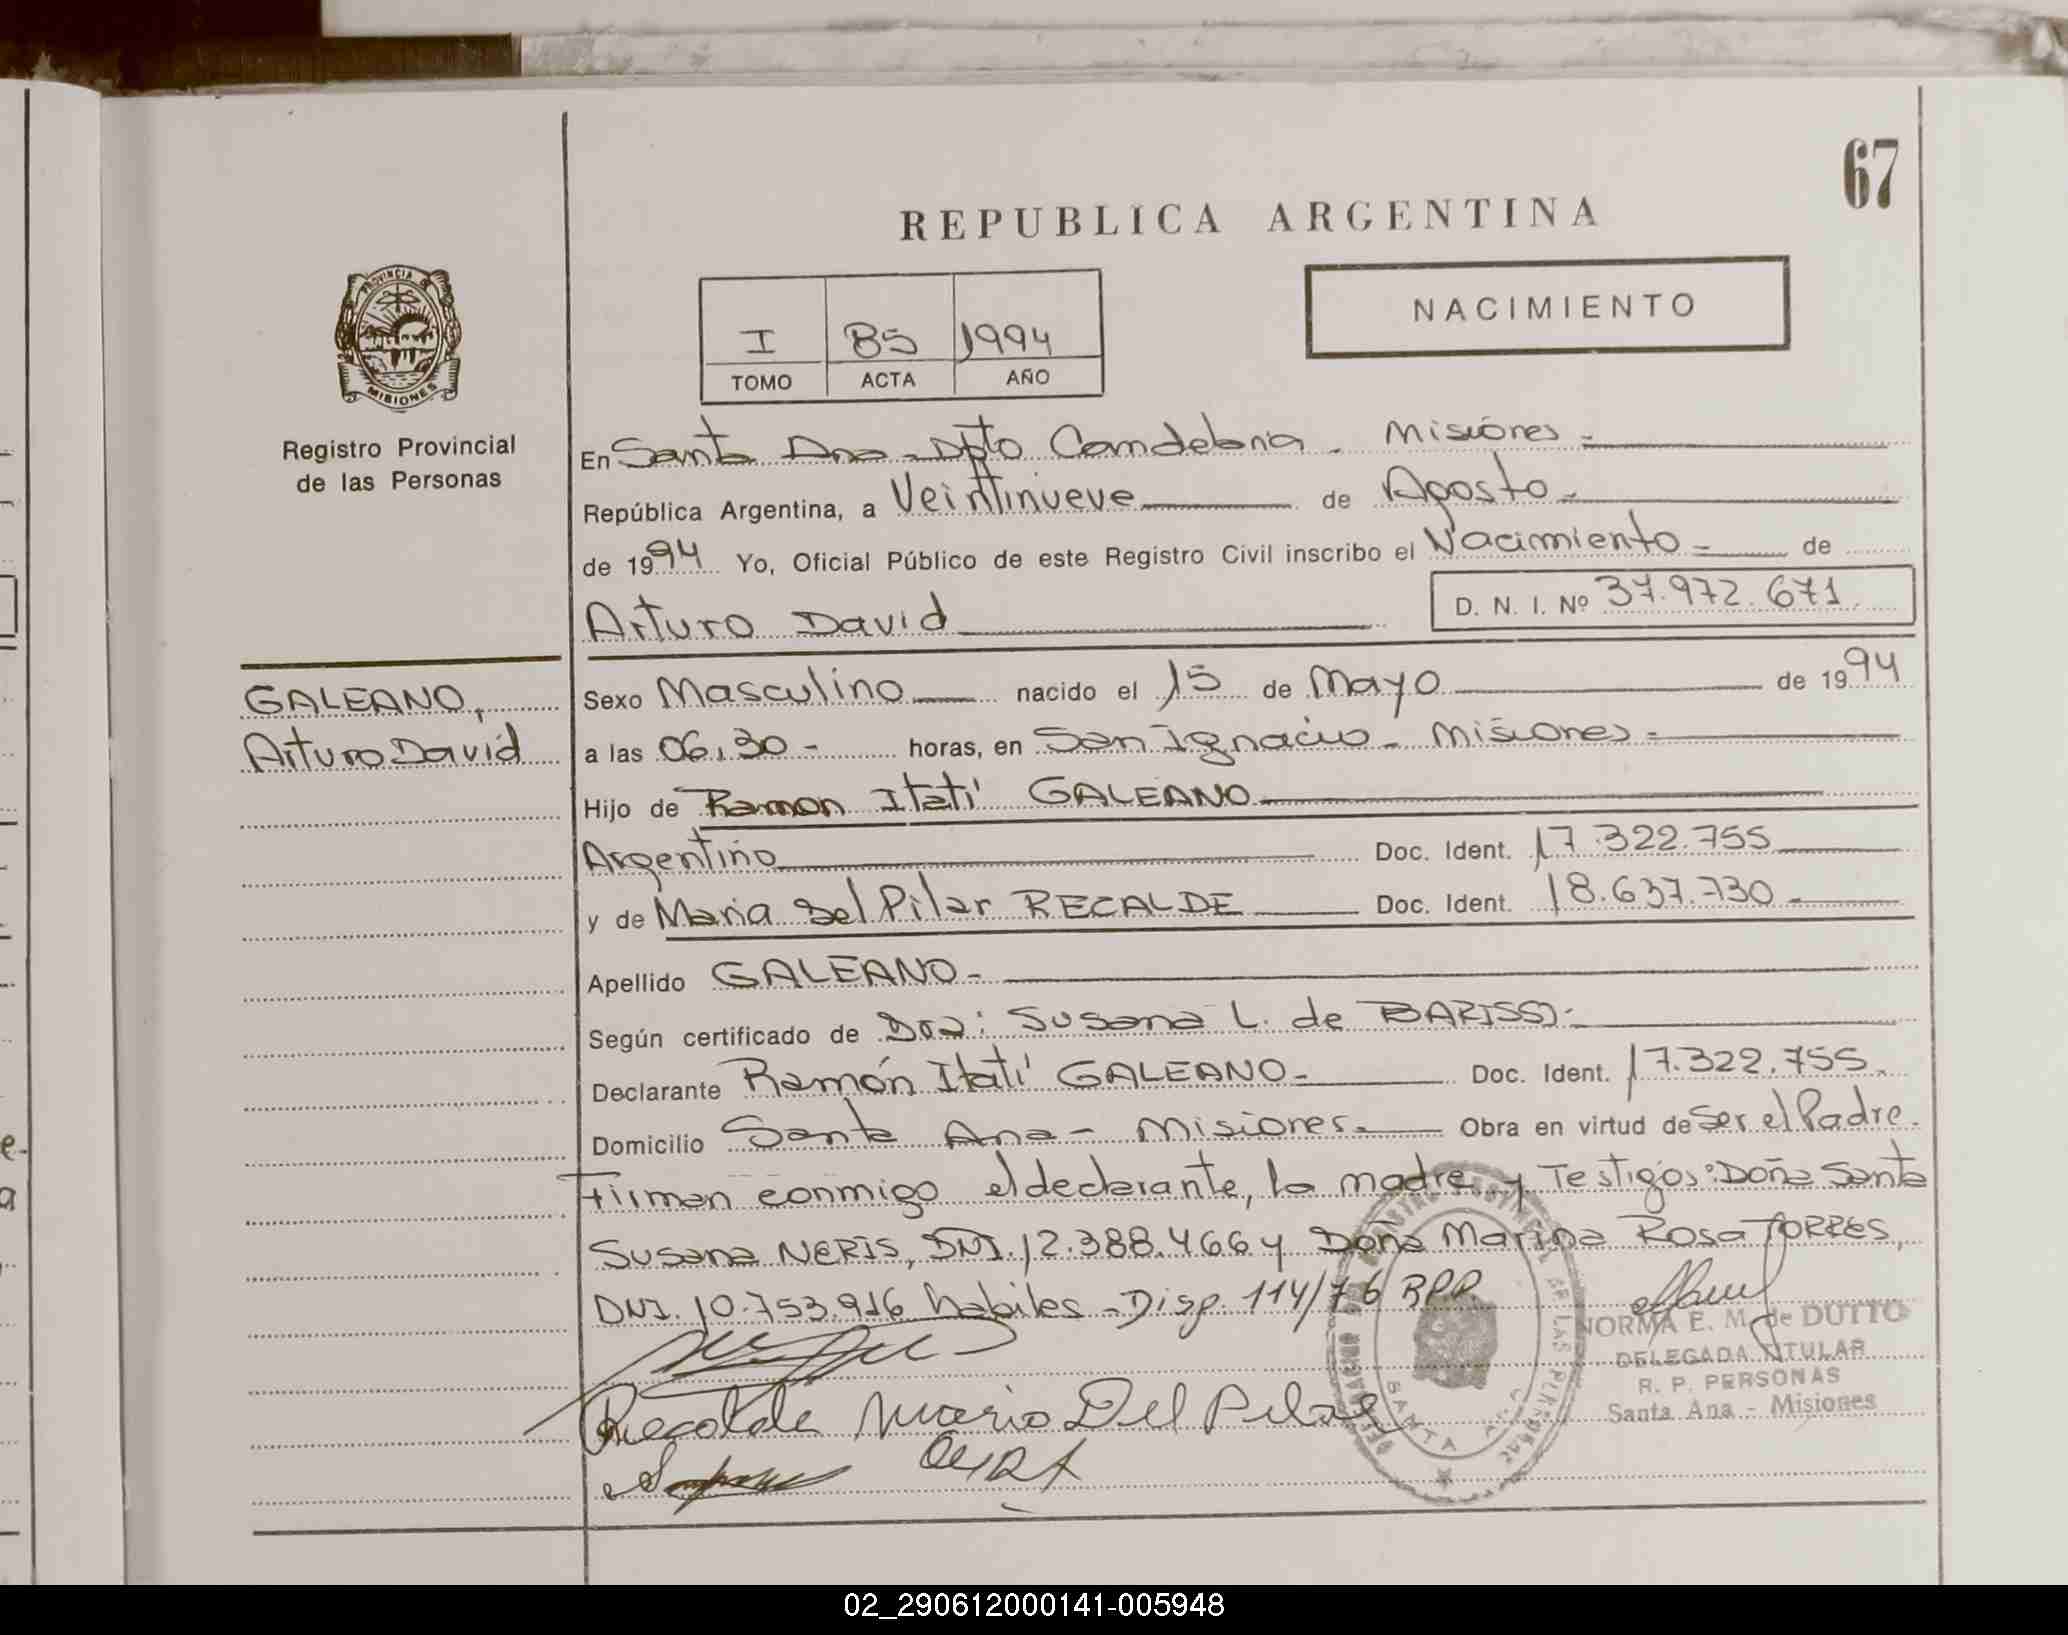 67
REPUBLICA ARGENTINA
PROVINCIA DE
MISIONES
Registro Provincial
de las Personas
I 85 1994
TOMO ACTA AÑO
NACIMIENTO
En Santa Ana - Dpto Candelaria - Misiones =
República Argentina, a Veintinueve de Agosto -
de 1994 Yo, Oficial Público de este Registro Civil inscribo el Nacimiento = de
Arturo David D. N. I. Nº 37.972.671.
GALEANO,
Arturo David
Sexo Masculino nacido el 15 de Mayo de 1994
a las 06,30 - horas, en San Ignacio - Misiones =
Hijo de Ramon Itatí GALEANO
Argentino Doc. Ident. 17.322.755
y de Maria Del Pilar RECALDE Doc. Ident. 18.637.730 -
Apellido GALEANO -
Según certificado de Dra: Susana L. de
Declarante Ramón Itatí GALEANO - Doc. Ident. 17.322.755.
Domicilio Santa Ana - Misiones - Obra en virtud de Ser el Padre.
Firman conmigo el declarante, la madre y Testigos: Doña Santa
Susana NERIS, DNI. 12.388.466 y Doña Marina Rosa TORRES,
DNI. 10.753.916 habiles - Disp. 114/76 RPP
NORMA E. M. de DUTTO
DELEGADA TITULAR
R. P. PERSONAS
Santa Ana - Misiones
Recalde Maria Del Pilar
02_290612000141-005948